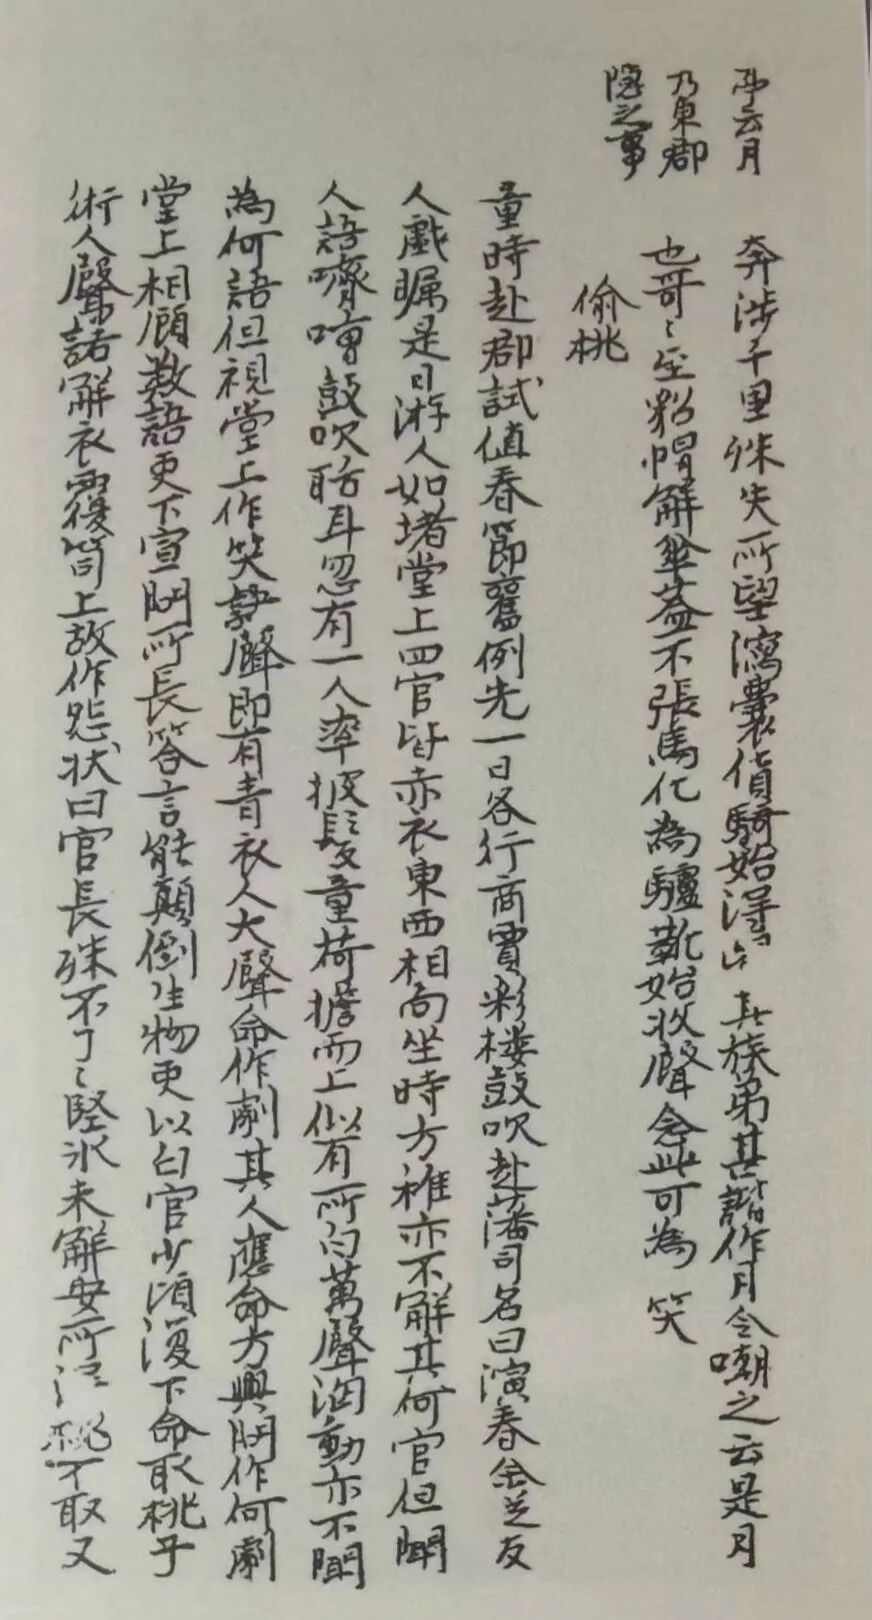 亭云月
乃東郡
隐之事
奔涉千里殊失所望瀉囊貨騎始得歸其族弟甚諧作月令嘲之云是月
也哥〻至貂帽解傘蓋不張馬化為驢靴始收聲念此可為笑
偷桃
童時赴郡試值春節舊例先一日各行商賈彩楼鼓吹赴藩司名曰演春余從友
人戲矚是日游人如堵堂上四官皆赤衣東西相向坐時方稚亦不解其何官但聞
人語嚌嘈鼓吹聒耳忽有一人率披髮童荷擔而上似有所白萬聲洶動亦不聞
為何語但視堂上作笑聲即有青衣人大聲命作劇其人應命方興問作何劇
堂上相顧數語吏下宣問所長答言能顛倒生物吏以白官少頃復下命取桃子
術人聲諾解衣覆笥上故作怨状曰官長殊不了〻堅冰未解安所得桃不取又